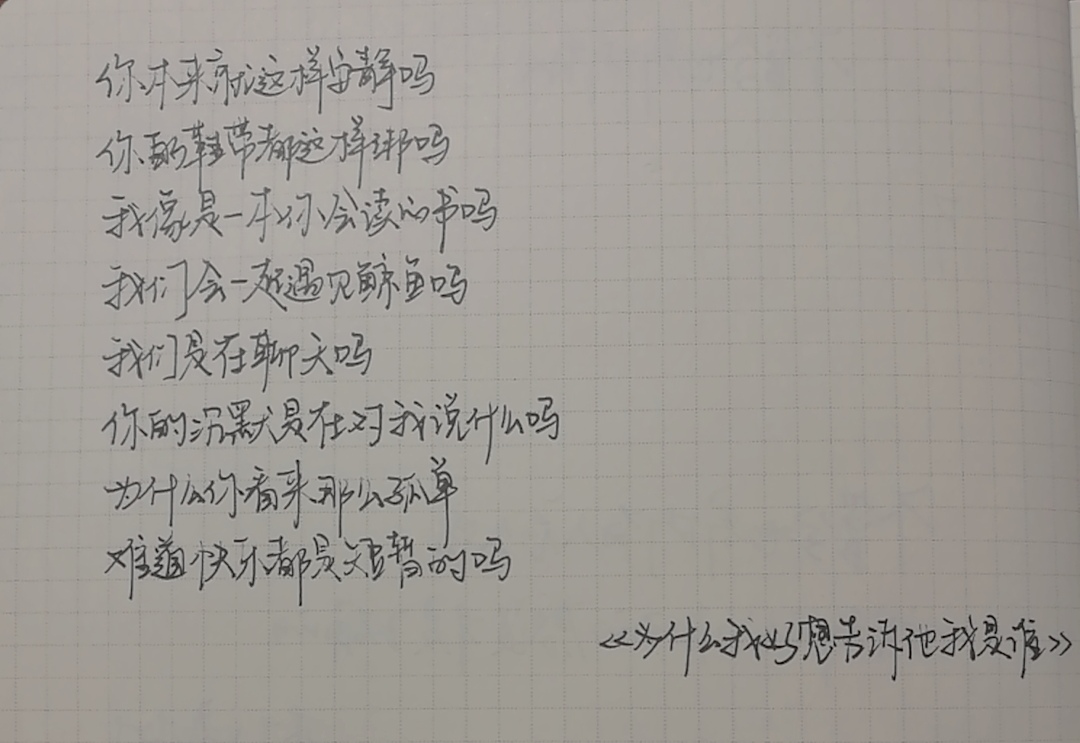 你本来就这样安静吗
你的鞋带都这样绑吗
我像是一本你会读的书吗
我们会一起遇见鲸鱼吗
我们是在聊天吗
你的沉默是在对我说什么吗
为什么你看来那么孤单
难道快乐都是短暂的吗
《为什么我好想告诉他我是谁》